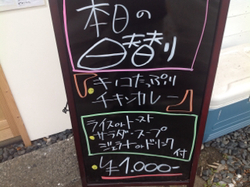 本日の
日替り
キノコたっぷり
チキンカレー
ライスorトースト
サラダ・スープ
ジェラートorドリンク付
¥1,000-